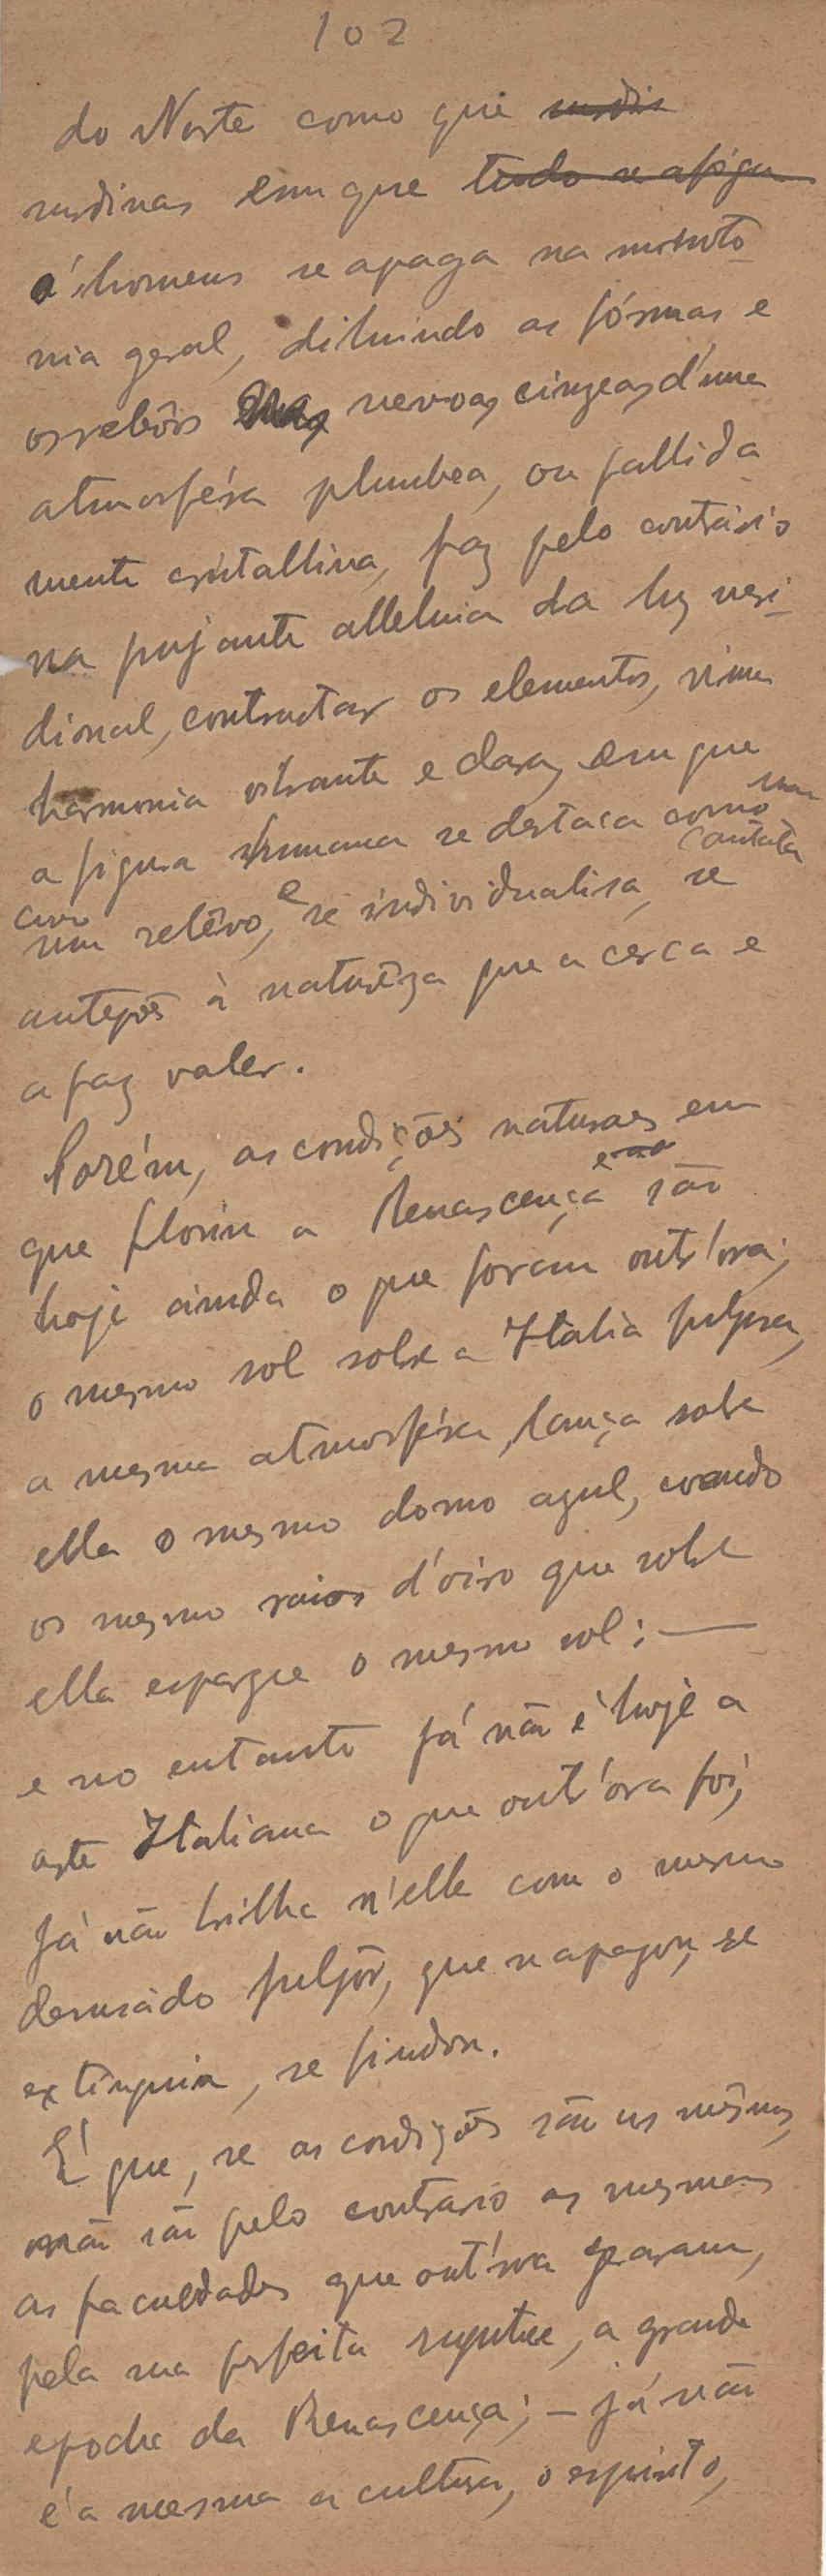 102
do Norte como que surdin
surdinas em que tudo se afigu
o homem se apaga na monoto
nia geral, diluindo as fórmas e
os relêvos nas nevoas cinzeas d'uma
atmosféra plumbea, ou pallida
mente cristallina, faz pelo contrário
na pujante alleluia da luz meri
dional, contrastar os elementos, n'uma
harmonia vibrante e clara, em que
a figura humana se destaca como uma cantata
com
um relêvo, e se individualisa, se
antepõe à naturêza que a cerca e
a faz valer.
Porém, as condições naturaes em
que floriu a Renascença são
hoje ainda o que foram outr'ora;
o mesmo sol sobre a Italia fulgura,
a mesma atmosféra, lança sobre
ella o mesmo domo azul, coando
os mesmo raios d'oiro que sobre
ella esparge o mesmo sol; —
e no entanto já não é hoje a
arte Italiana o que outr'ora foi,
já não brilha n'elle com o mesmo
desusado fulgôr, que se apagou, se
extinguiu, se findou.
É que, se as condições são as mesmas,
não são pelo contrario as mesmas
as faculdades que outr'ora geraram,
pela sua perfeita , a grande
epocha da Renascença; – já não
é a mesma a cultura, o espirito,